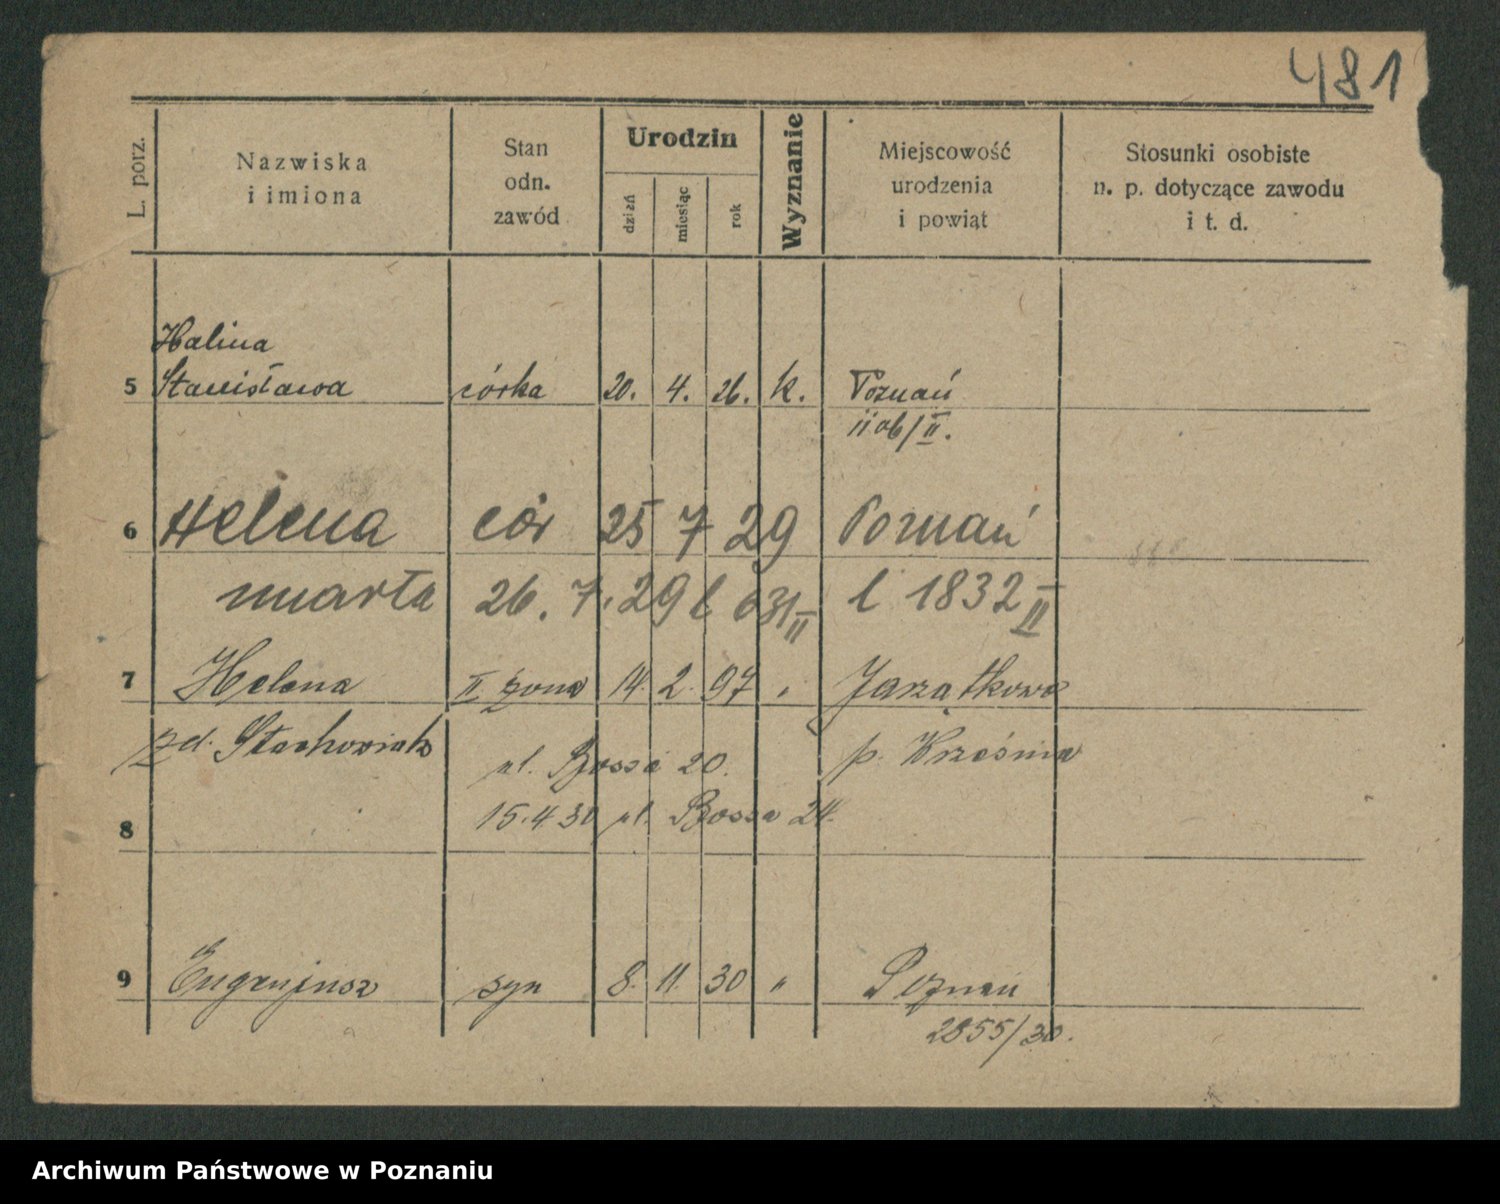 481
L. porz.
Nazwiska
i imiona
Stan
odn.
zawód
Urodzin
dzień
miesiąc
rok
Wyznanie
Miejscowość
urodzenia
i powiat
Stosunki osobiste
n. p. dotyczące zawodu
i t. d.
Halina
5 Stanisława córka 20. 4. 26. k. Poznań
/II.
6 Helena cór 25 7 29 Poznań
umarła 26. 7. 29 l 631 II l 1832 II
7 Helena II żona 14. 2. 97 " Jarząbkowo
zd. Stachowiak p. Września
pl. Bossa 20.
8 15.4.30 pl. Bossa 24.
9 Eugenjusz syn 8. 11. 30 " Poznań
2855/30.
Archiwum Państwowe w Poznaniu